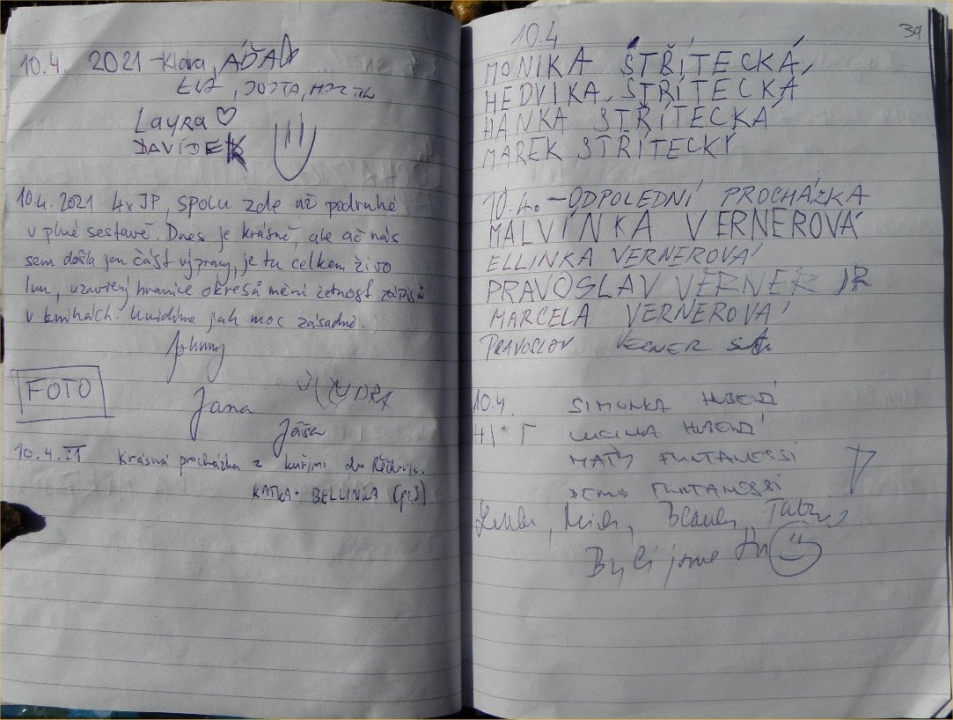 10.4. 2021 - Klára, ÁĎA
EVA, JUTTA,
Layra ♡
DAVÍDEK
10.4.2021 4x JP, spolu zde až podruhé
v plné sestavě. Dnes je krásně, ale ač nás
sem došla jen část výpravy, je tu celkem živo.
uzavření hranice okresů mění četnost zápisů
v knihách. Uvidíme jak moc zásadně.
Johnny
FOTO
Jana
Jáša
10.4.21 Krásná procházka z Kuřimi do
KATKA + BELLINKA (pes)
39
10.4
MONIKA STŘÍTECKÁ,
HEDVIKA STŘÍTECKÁ
HANKA STŘÍTECKÁ
MAREK STŘÍTECKÝ
10.4. - ODPOLEDNÍ PROCHÁZKA
MALVÍNKA VERNEROVÁ
ELLINKA VERNEROVÁ
PRAVOSLAV VERNER JR
MARCELA VERNEROVÁ
PRAVOSLAV VERNER
10.4. SIMONKA
MATY FUNTANESSI
FUNTANESSI
Byli jsme tu